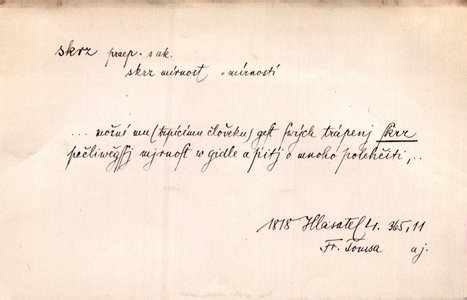 skrz praep. s ak.
skrz mírnost = mírností
... možné mu (trpícímu člověku) gest swých trápenj skrz
pečliwěgssj mjrnost w gidle a pitj o mnoho polehčiti, ..
1818 Hlasatel 4. 365, 11
Fr. Tomsa a j.